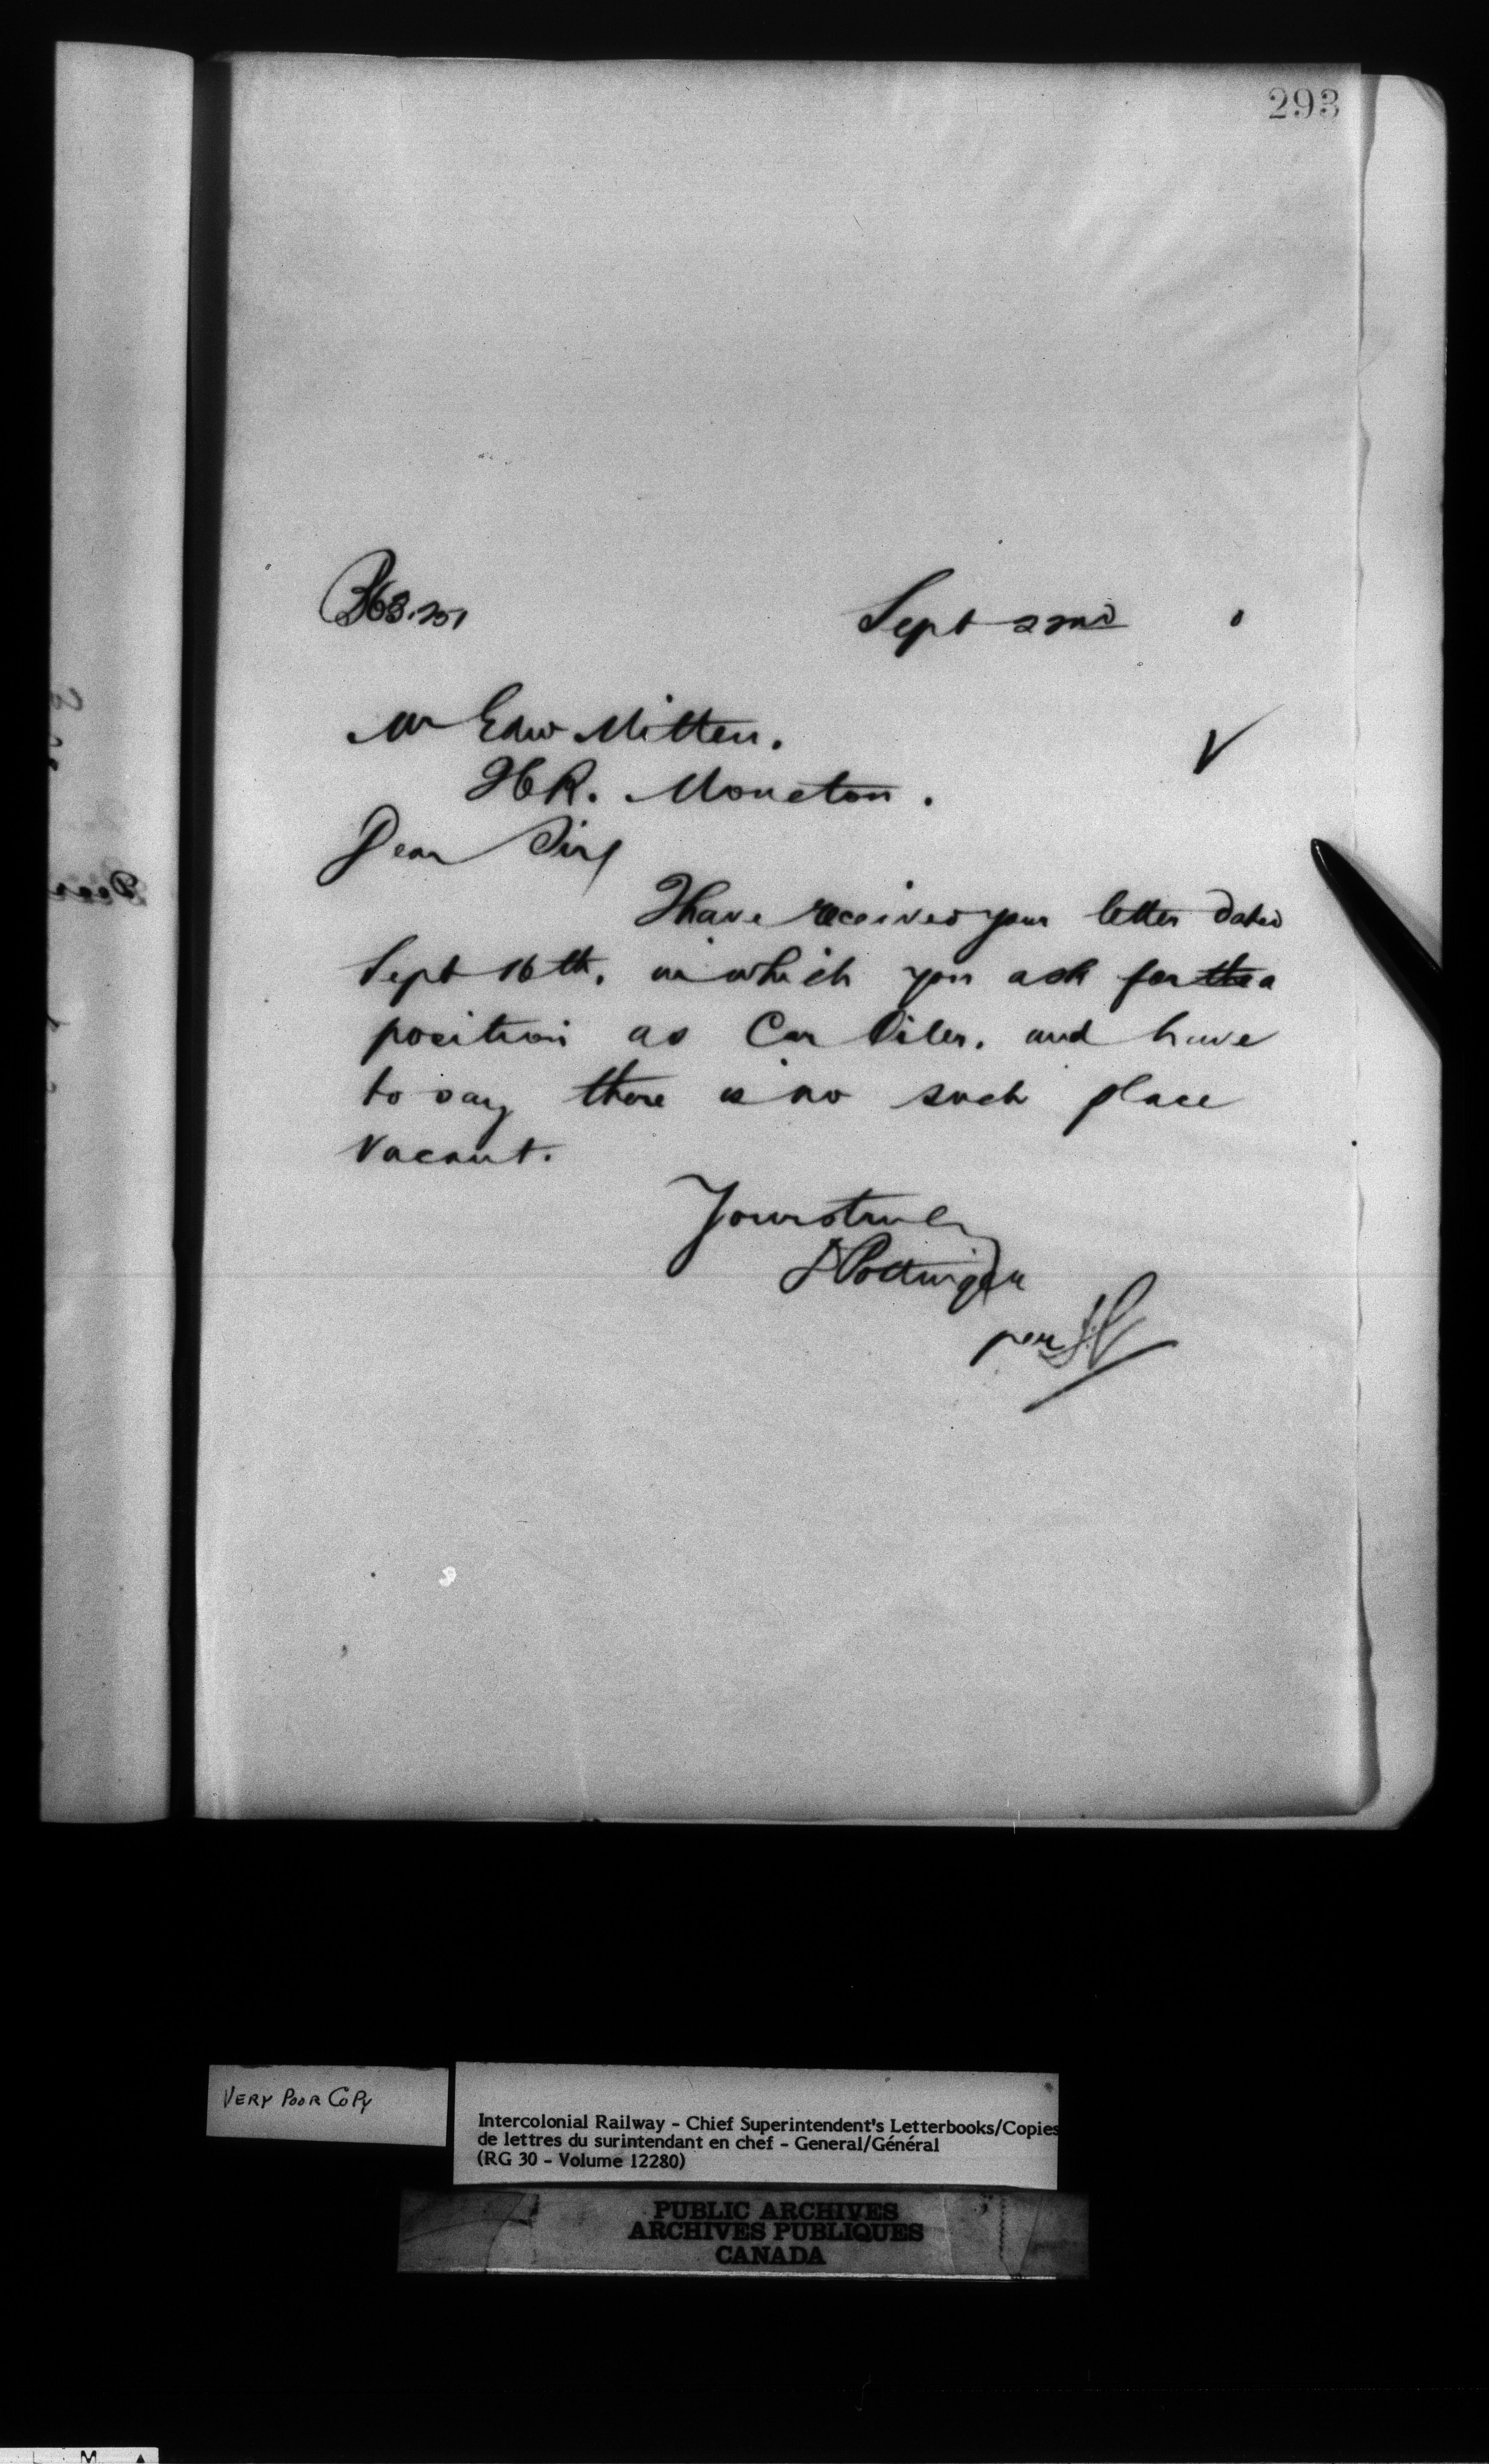 293
Sept 22nd
Mr Edw Mitten.
Moncton.
Dear Sir
I have received your letter dated
Sept 16th, in which you ask for the a
position as Car Oiler, and have
to say there is no such place
vacant.
Yours truly
D Pottinger
per
VERY POOR COPY
Intercolonial Railway - Chief Superintendent's Letterbooks/Copies
de lettres du surintendant en chef - General/Général
(RG 30 - Volume 12280)
PUBLIC ARCHIVES
ARCHIVES PUBLIQUES
CANADA